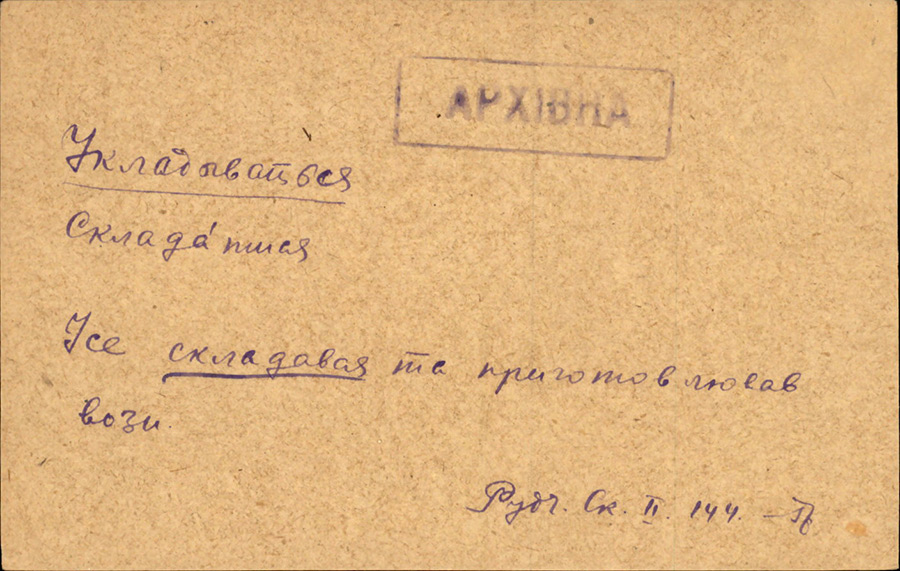 АРХІВНА
Укладываться
Склада́тися
Усе складавая та приготовлював
вози.
Рудч. Ск. II. 144.